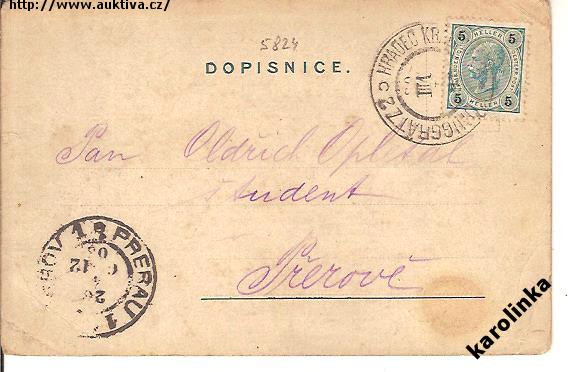 http://www.auktiva.cz/
5824
DOPISNICE.
HRADEC KR.
KÖNIGGRÄTZ 2
5 HELLER 5
5 HELLER 5
Pan Oldřich Opletal
študent
Přerově
PŘEROV 1 PRERAU 1
karolinka